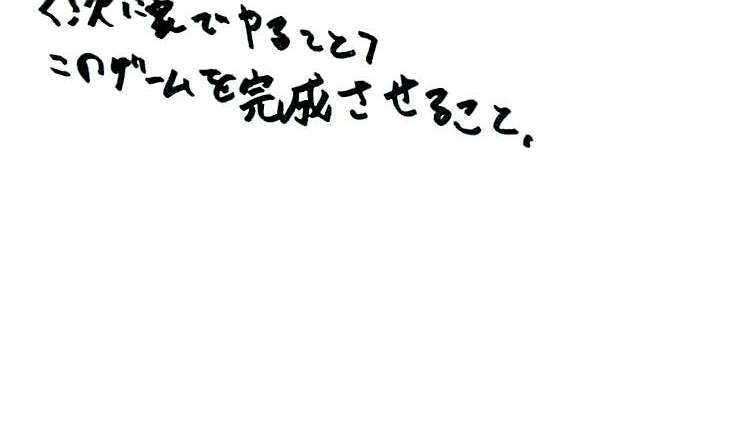 <次に家でやること>
このゲームを完成させること.